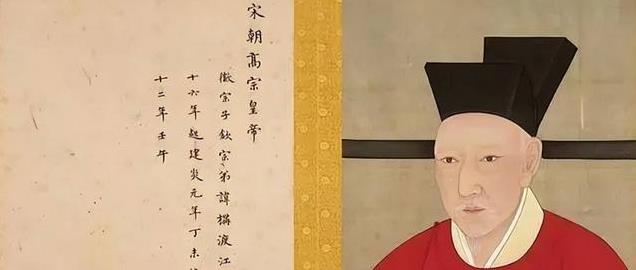 宋朝高宗皇帝
徽宗子欽宗弟諱構渡江
十六年起建炎元年丁未
十二年壬午